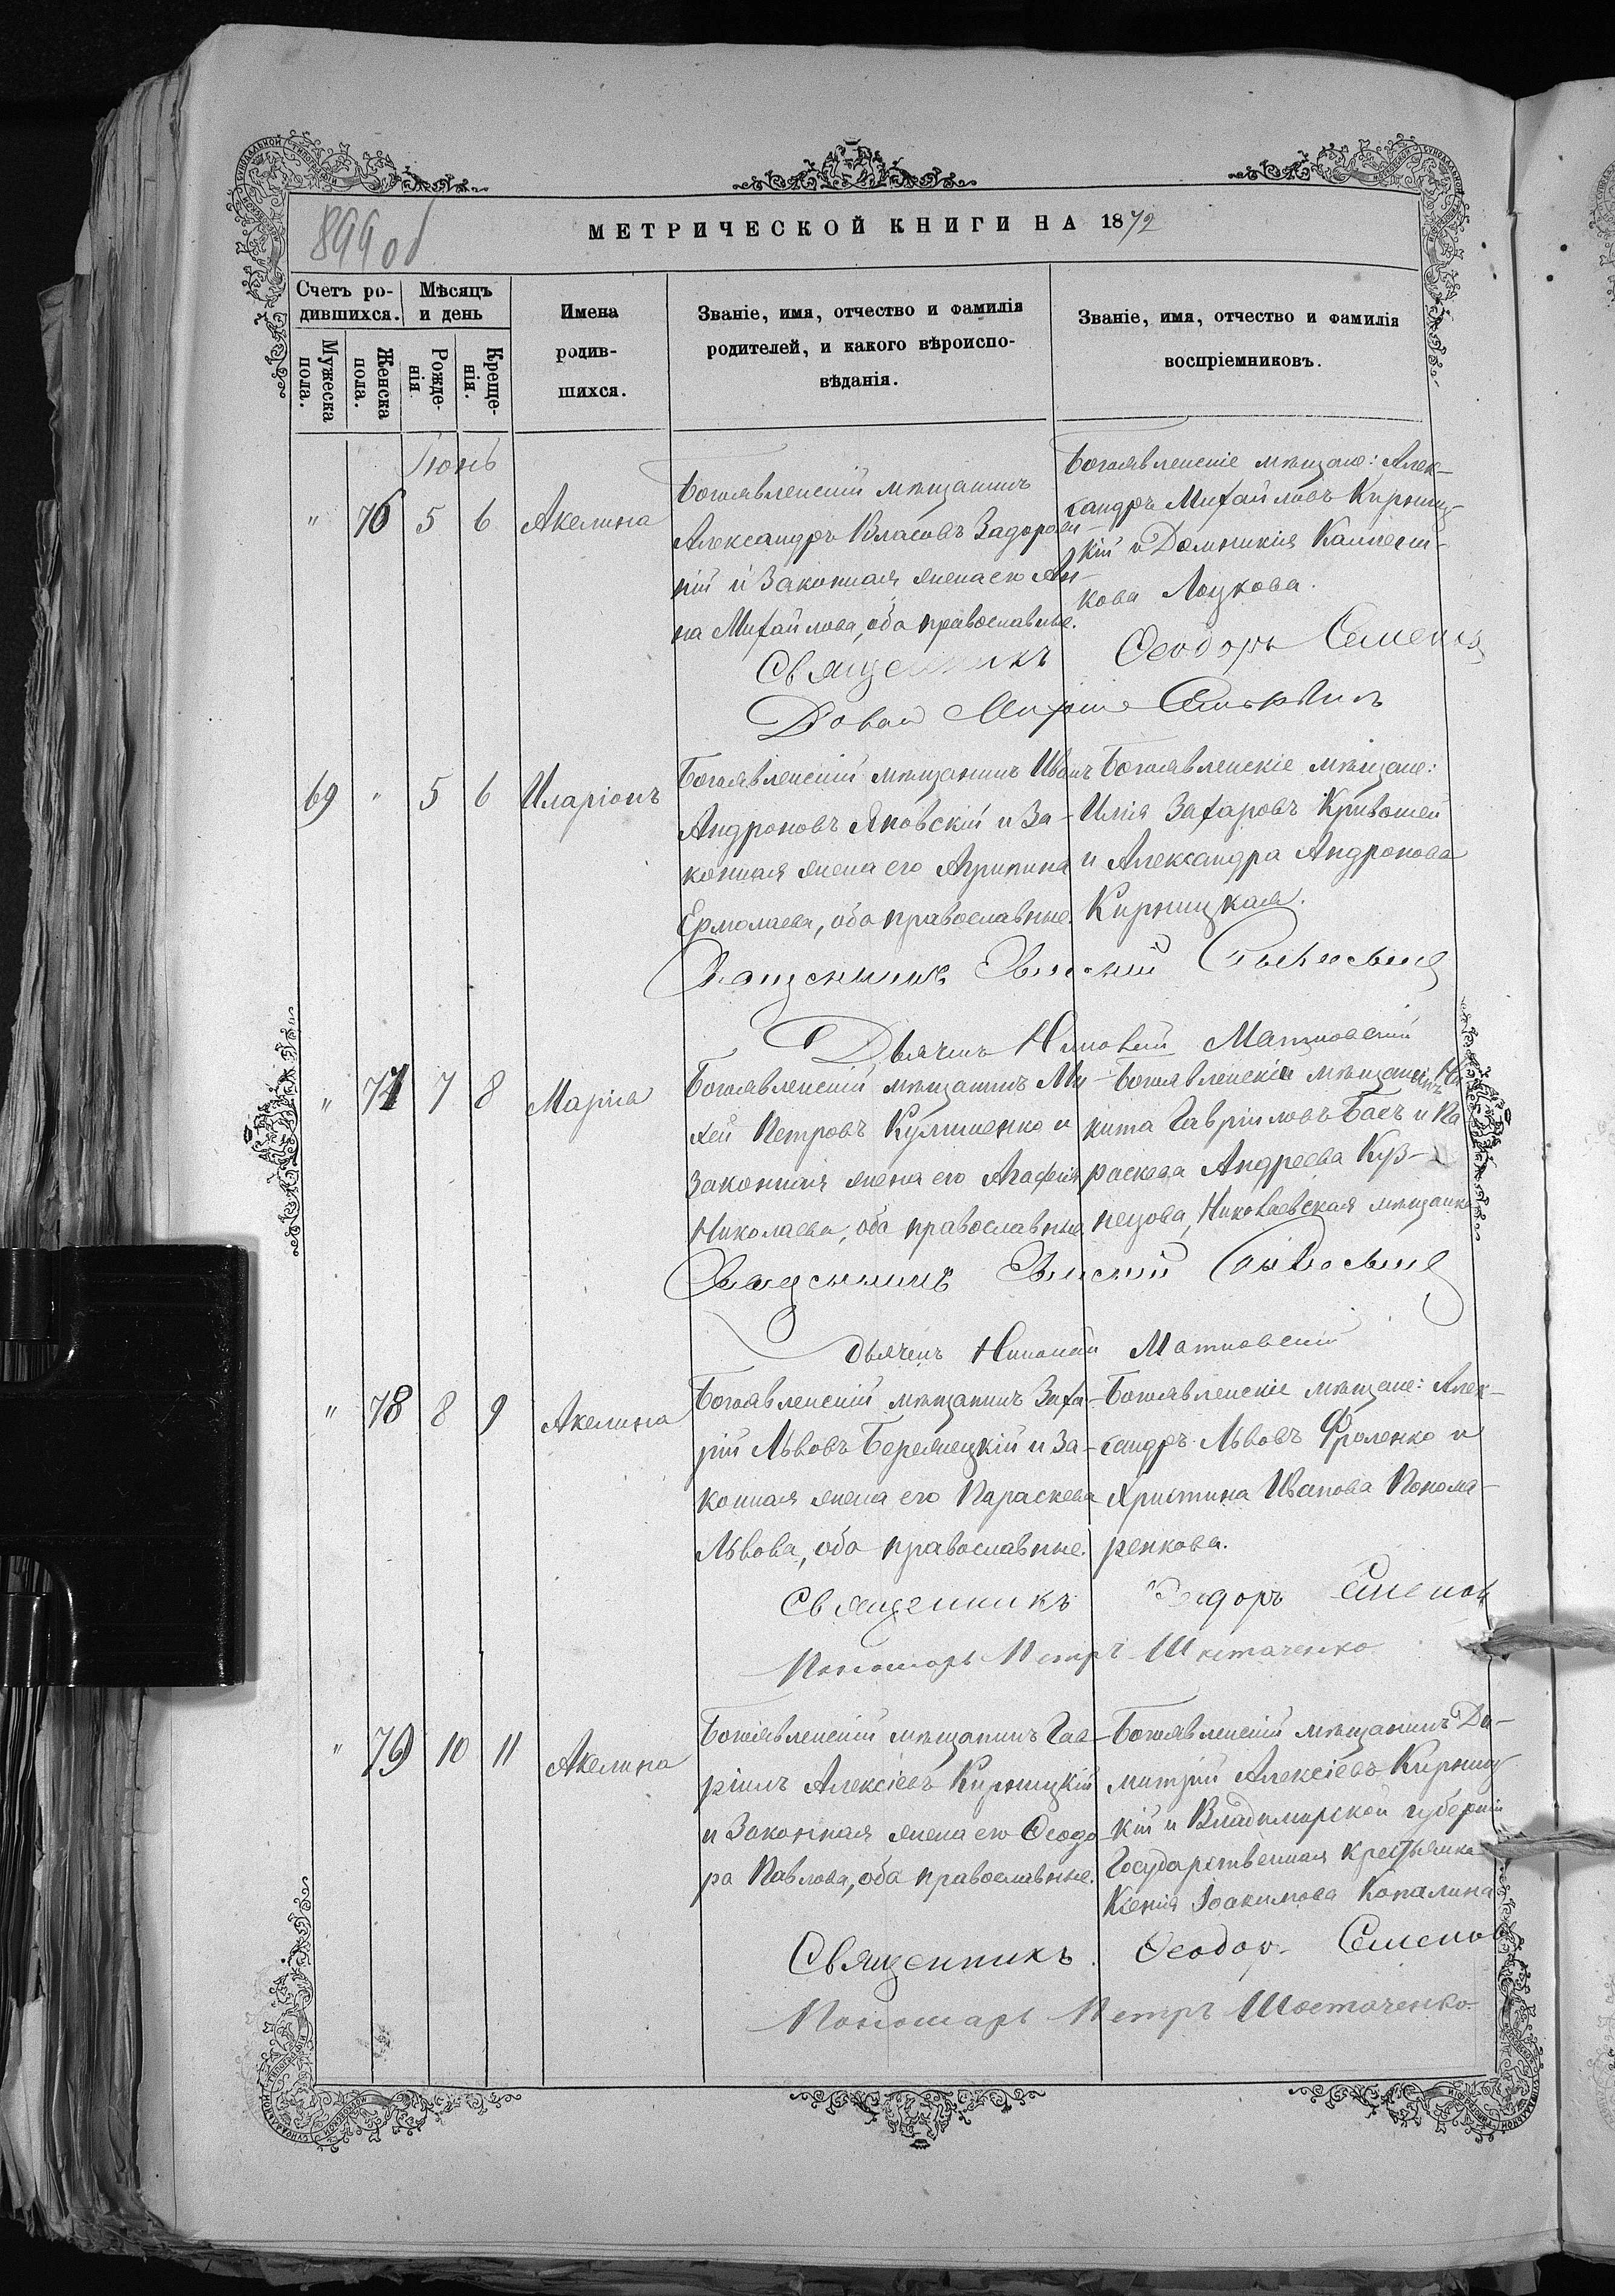 899 об
МЕТРИЧЕСКОЙ КНИГИ НА 1872
Счетъ ро-
дившихся.
Мѣсяцъ
и день
Мужеска
пола.
Женска
пола.
Рожде-
нія
Креще-
нія.
Имена
родив-
шихся.
Званіе, имя, отчество и фамилія
родителей, и какого вѣроиспо-
вѣданія.
Званіе, имя, отчество и фамилія
воспріемниковъ.
Іюнь
" 76 5 6 Акелина
Богоявленскій мѣщанинъ
Александръ Власовъ Задорож-
ній и законная жена его Ан-
на Михайлова, оба православные.
Богоявленскіе мѣщане: Алек-
сандръ Михайловъ Кирниц-
кій и Домникія Калист-
кова Лоцкова.
Священникъ Ѳеодоръ Семенов
69 " 5 6 Иларіонъ
Богоявленскій мѣщанинъ Иванъ
Андроновъ Яновскій и за-
конная жена его Агрипина
Ермолаева, оба православные.
Богоявленскіе мѣщане:
Илія Захаровъ Кривошей
и Александра Андронова
Кирницкая.
Священникъ
Дьячекъ Николай Матковскій
" 77 7 8 Марія
Богоявленскій мѣщанинъ Ми-
хей Петровъ Кулишенко и
законная жена его Агафія
Николаева, оба православные.
Богоявленскій мѣщанинъ Ни
кита Гавріиловъ Баевъ и Па
раскева Андреева Куз-
нецова, Николаевская мѣщанка
Священникъ
Дьячекъ Николай Матковскій
" 78 8 9 Акелина
Богоявленскій мѣщанинъ Заха-
рій Львовъ Бережецкій и за-
конная жена его Параскева
Львова, оба православные.
Богоявленскіе мѣщане: Алек-
сандръ Львовъ Фроленко и
Христина Иванова Понома-
ренкова.
Священникъ Ѳеодоръ Семенов
Пономарь Петръ Шостаченко
" 79 10 11 Акелина
Богоявленскій мѣщанинъ Гав-
ріилъ Алексіевъ Кирницкій
и законная жена его Ѳеодо-
ра Павлова, оба православные.
Богоявленскій мѣщанинъ Ди-
митрій Алексіевъ Кирниц-
кій и Владимірской губерніи
Государственная крестьянка
Ксенія Іоакимова Копалина
Священникъ Ѳеодоръ Семенов
Пономарь Петръ Шостаченко